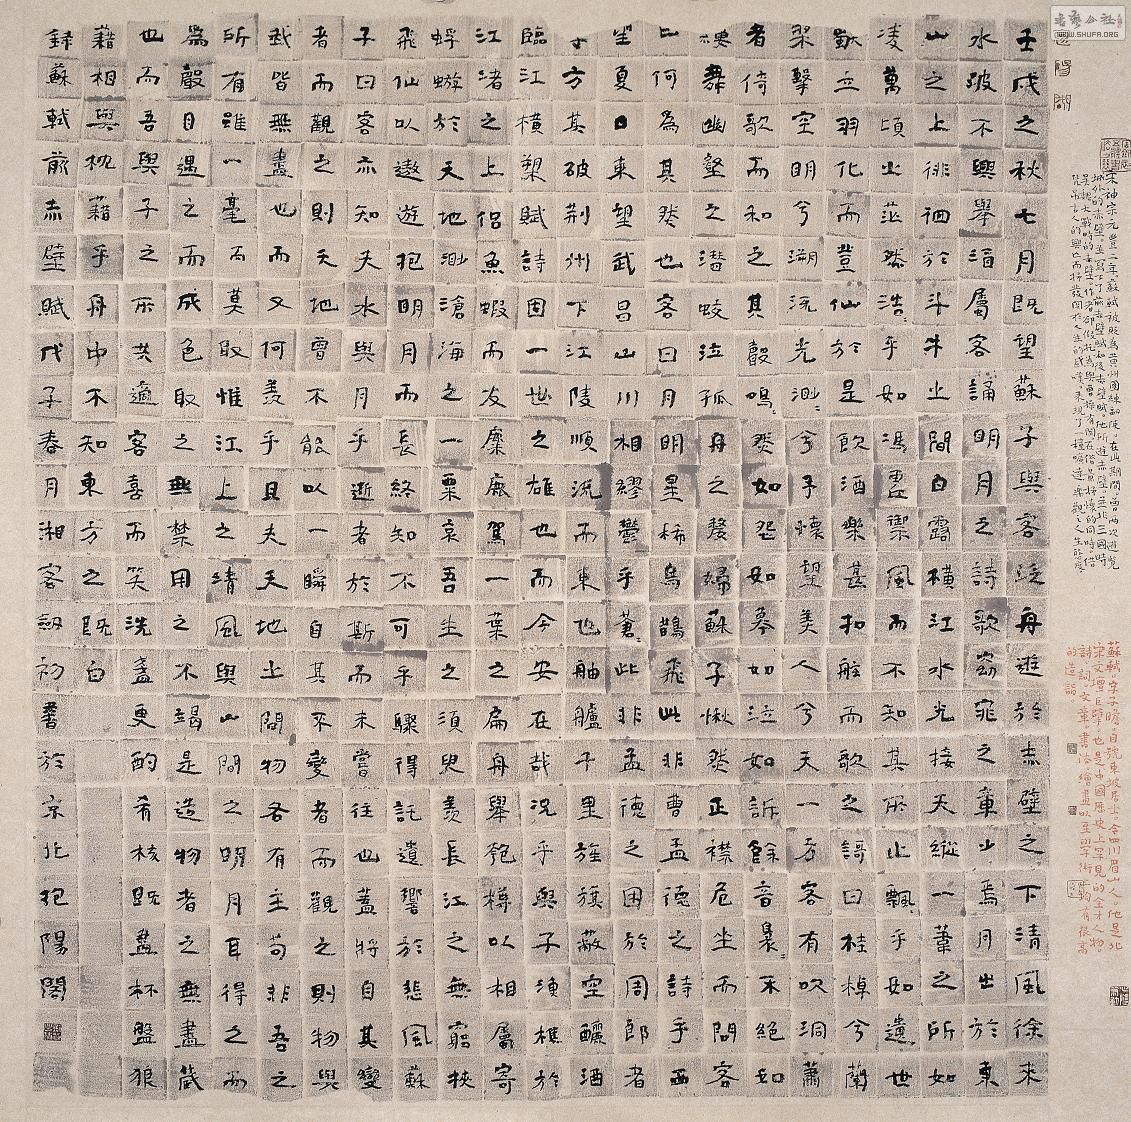 壬戌之秋七月既望蘇子與客泛舟遊於赤壁之下清風徐來
水波不興舉酒屬客誦明月之詩歌窈窕之章少焉月出於東
山之上徘徊於斗牛之間白露橫江水光接天縱一葦之所如
凌萬頃之茫然浩〻乎如馮虛禦風而不知其所止飄〻乎如遺世
獨立羽化而登仙於是飲酒樂甚扣舷而歌之謌曰桂棹兮蘭
槳擊空明兮溯流光渺〻兮予懷望美人兮天一方客有吹洞簫
者倚歌而和之其聲嗚〻然如怨如慕如泣如訴餘音裊〻不絕如
縷舞幽壑之潛蛟泣孤舟之嫠婦蘇子愀然正襟危坐而問客
曰何為其然也客曰月明星稀烏鵲飛此非曹孟德之詩乎西
望夏口東望武昌山川相繆鬱乎蒼〻此非孟德之困於周郎者
乎方其破荊州下江陵順流而東也舳艫千里旌旗蔽空釃酒
臨江橫槊賦詩固一世之雄也而今安在哉況乎與子漁樵於
江渚之上侶魚蝦而友麋鹿駕一葉之扁舟舉匏樽以相屬寄
蜉蝣於天地渺滄海之一粟哀吾生之須臾羨長江之無窮挾
飛仙以遨遊抱明月而長終知不可乎驟得託遺響於悲風蘇
子曰客亦知夫水與月乎逝者於斯而未嘗往也蓋將自其變
者而觀之則天地曾不能以一瞬自其不變者而觀之則物與
我皆無盡也而又何羨乎且夫天地之間物各有主苟非吾之
所有雖一毫而莫取惟江上之清風與山間之明月耳得之而
為聲目遇之而成色取之無禁用之不竭是造物者之無盡藏
也而吾與子之所共適客喜而笑洗盞更酌肴核既盡杯盤狼
藉相與枕藉乎舟中不知東方之既白
錄蘇軾前赤壁賦戊子春月湘客劒初書於京北抱陽閣
宋神宗元豐二年，蘇軾被貶為黃州團練副使。在此期間，曾兩次遊覽
城外的赤壁，並寫下了前赤壁賦和後赤壁賦。他所遊赤壁，並非三國時
蘇軾，字子瞻，自號東坡居士，今四川眉山人。他是北
宋文壇巨擘，也是中國歷史上罕見的全才人物。
詩、詞、文章、書法、繪畫以至學術，均有很高
的造詣。
WWW.SHUFA.ORG